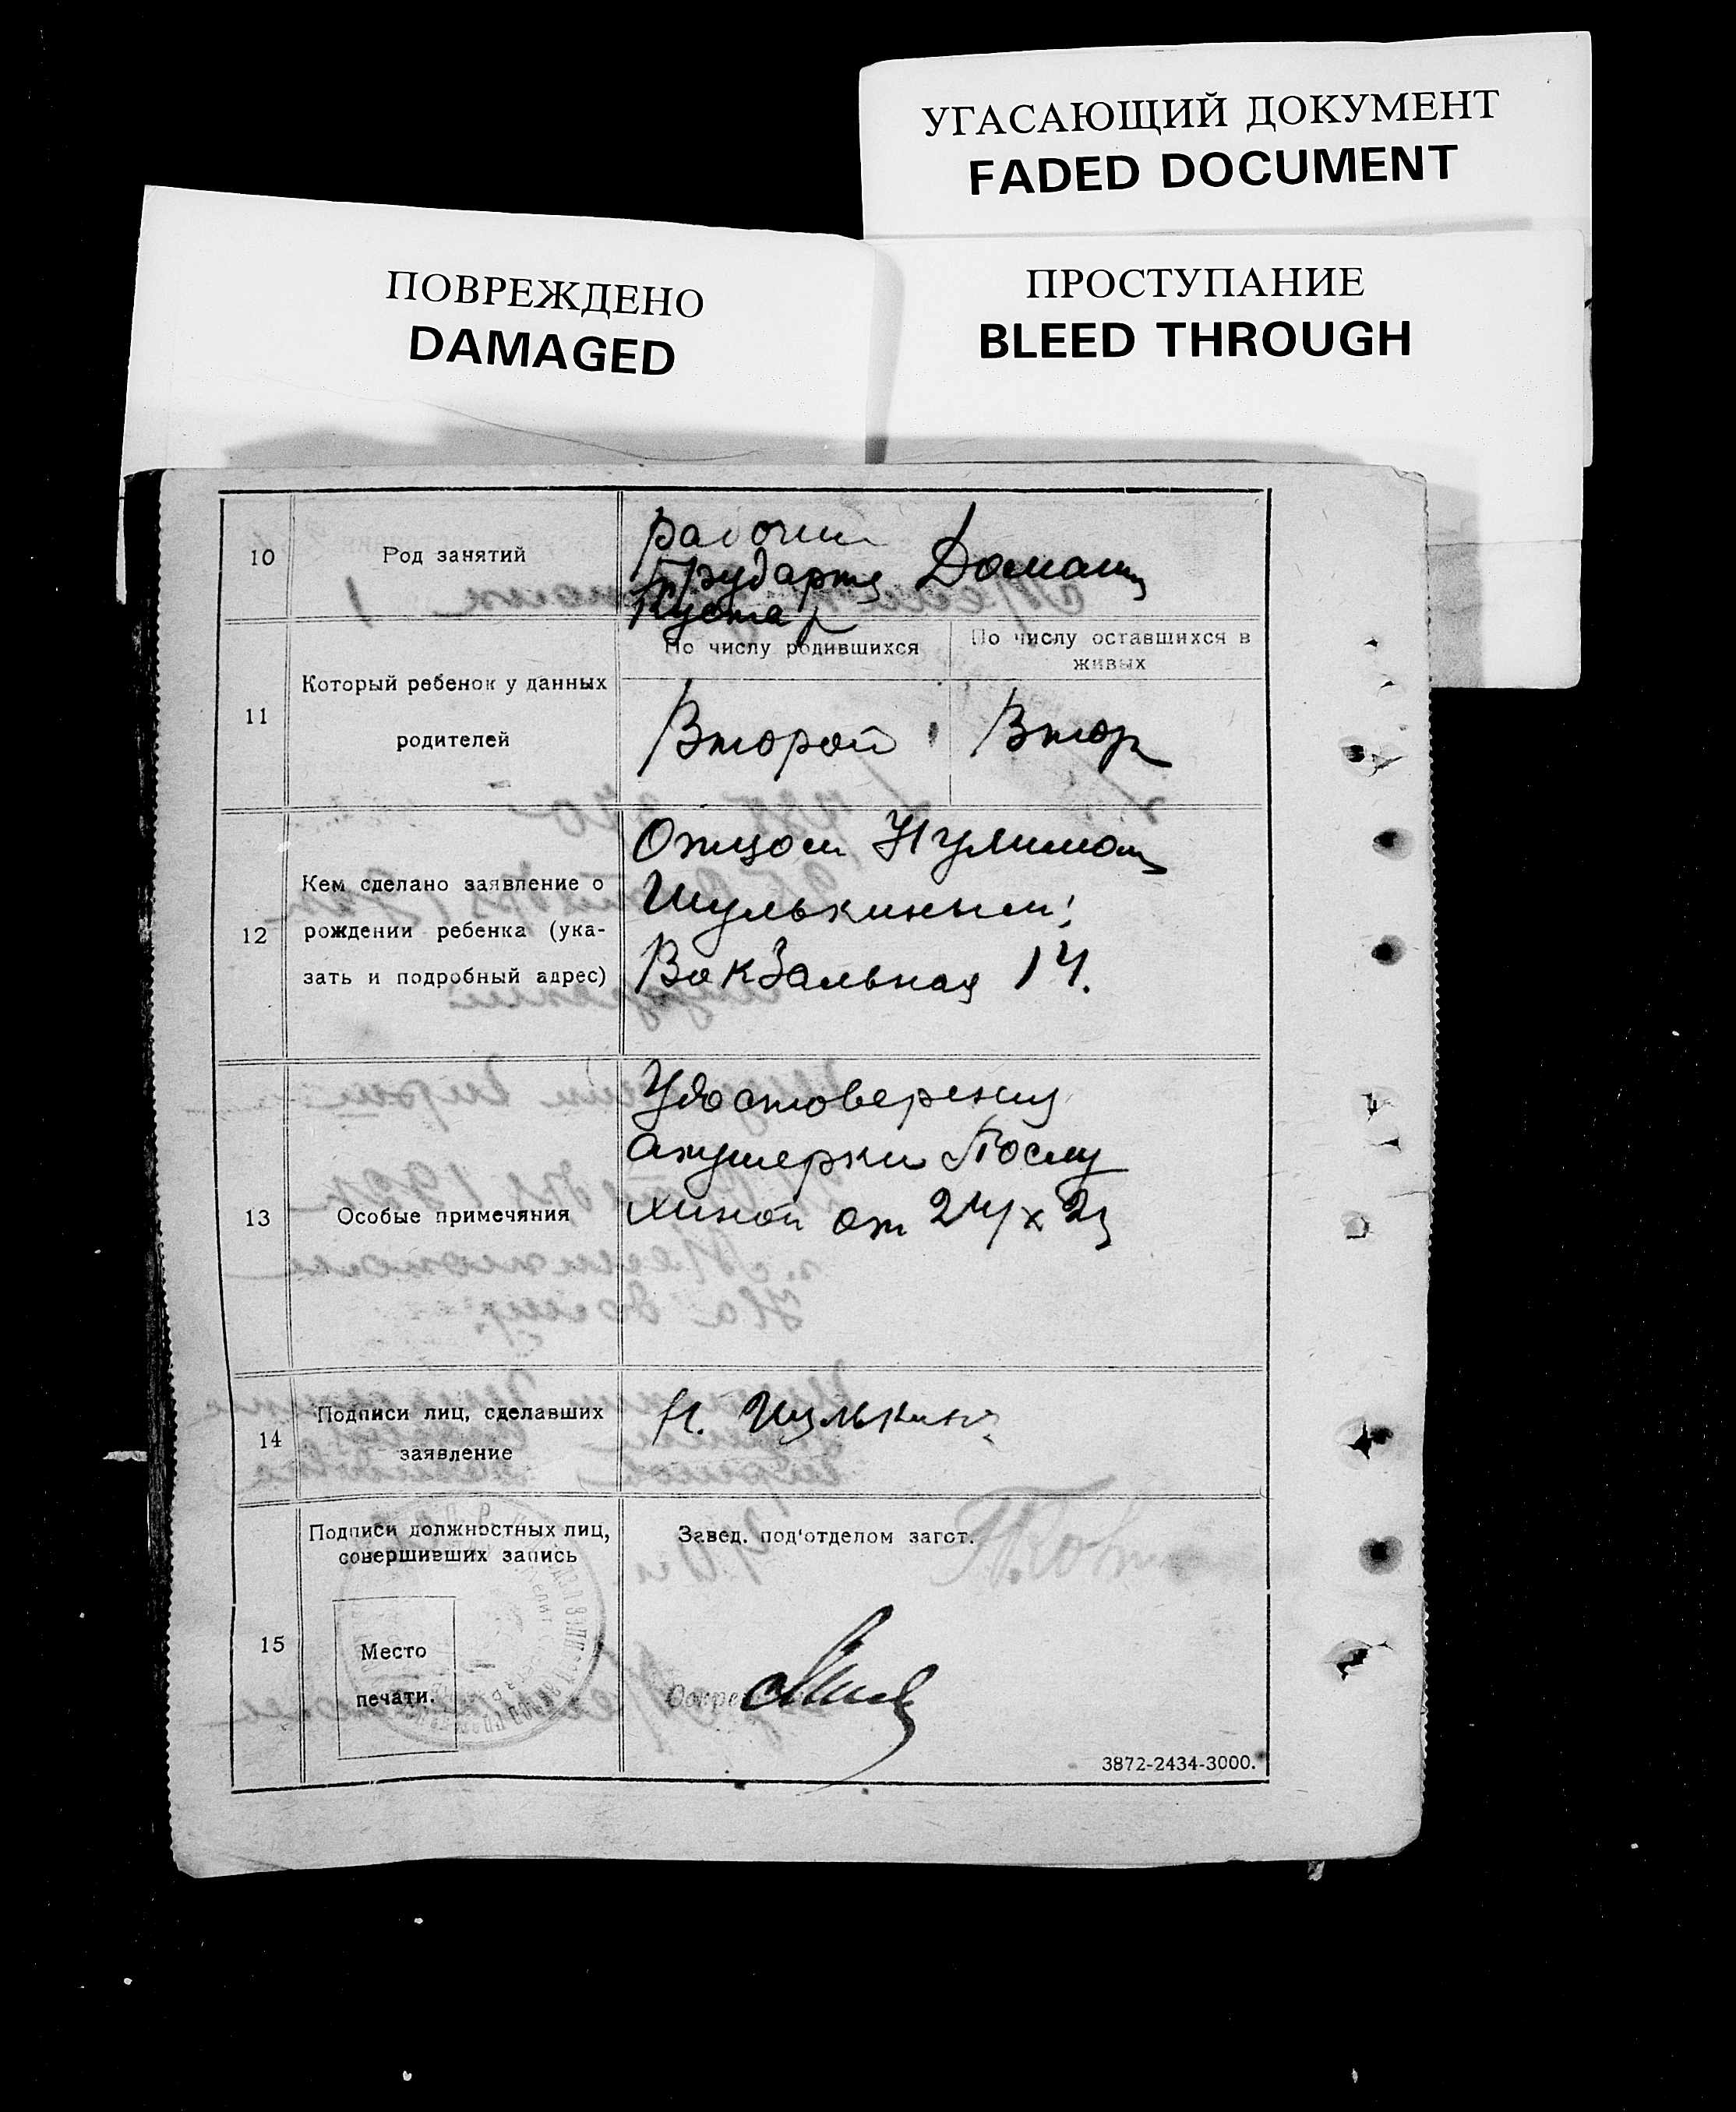 УГАСАЮЩИЙ ДОКУМЕНТ
FADED DOCUMENT
ПОВРЕЖДЕНО
DAMAGED
ПРОСТУПАНИЕ
BLEED THROUGH
10
Род занятий
рабочий
Домаш
Кустар
11
Который ребенок у данных
родителей
По числу родившихся
По числу оставшихся в
живых
Второй
Втор
12
Кем сделано заявление о
рождении ребенка (ука-
зать и подробный адрес)
Отцом
Шулькиным
Вокзальная 14.
13
Особые примечания
Удостоверения
акушерки Послу
хиной от 24/X
14
Подписи лиц, сделавших
заявление
Н. Шулькин
15
Подписи должностных лиц,
совершивших запись
Место
печати.
Завед. под'отделом загст.
3872-2434-3000.